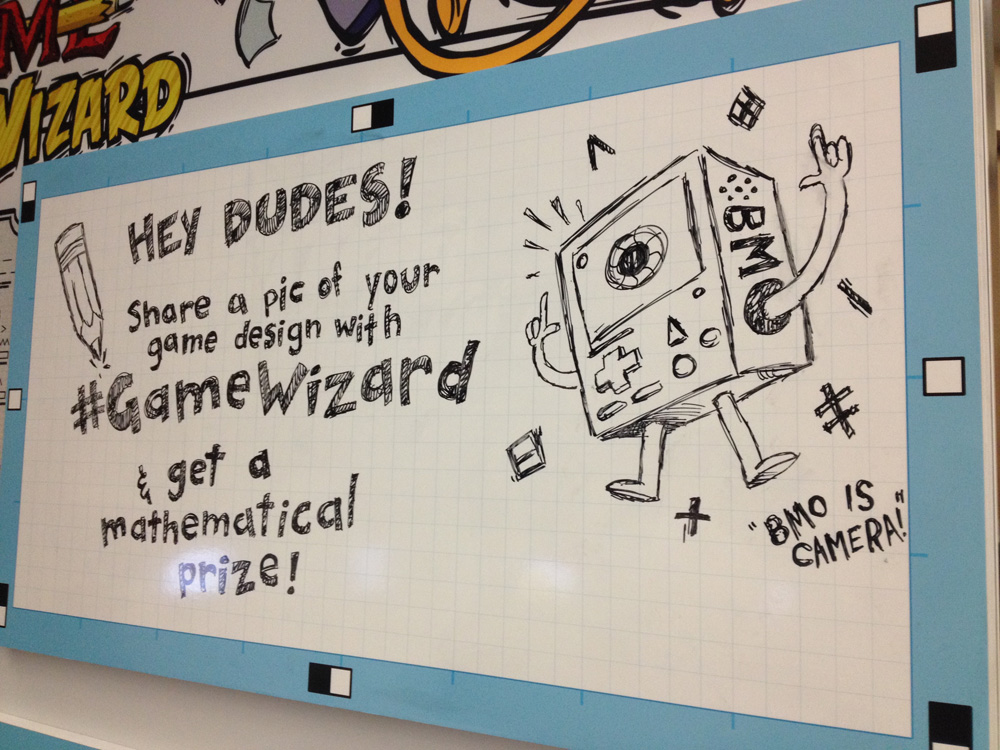 WIZARD
HEY DUDES!
Share a pic of your
game design with
#GameWizard
& get a
mathematical
prize!
BMO
"BMO IS
CAMERA!"